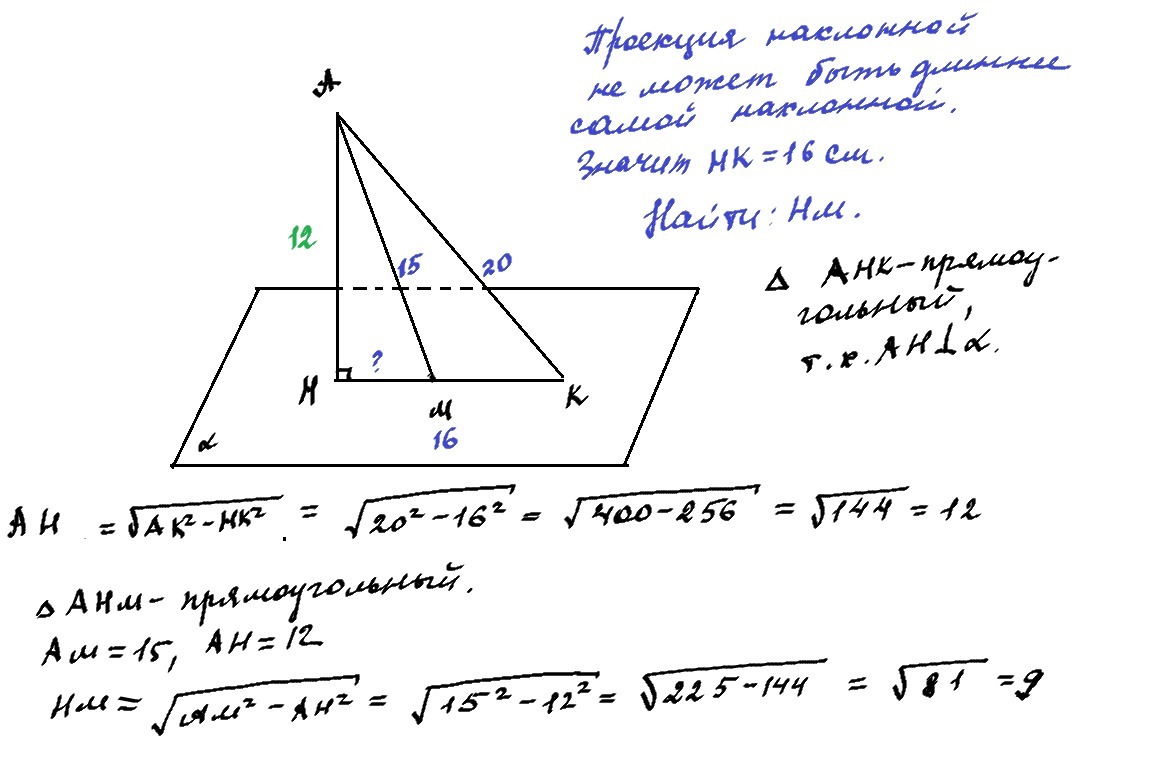 Проекция наклонной
не может быть длиннее
самой наклонной.
Значит НК = 16 см.
Найти: НМ.
A
12
15
20
Δ АНК - прямоу-
гольный,
т.к. АН ⊥ α.
?
Н
М
К
16
α
АН = √АК² - НК² = √20² - 16² = √400 - 256 = √144 = 12
Δ АНМ - прямоугольный.
АМ = 15, АН = 12
НМ = √АМ² - АН² = √15² - 12² = √225 - 144 = √81 = 9